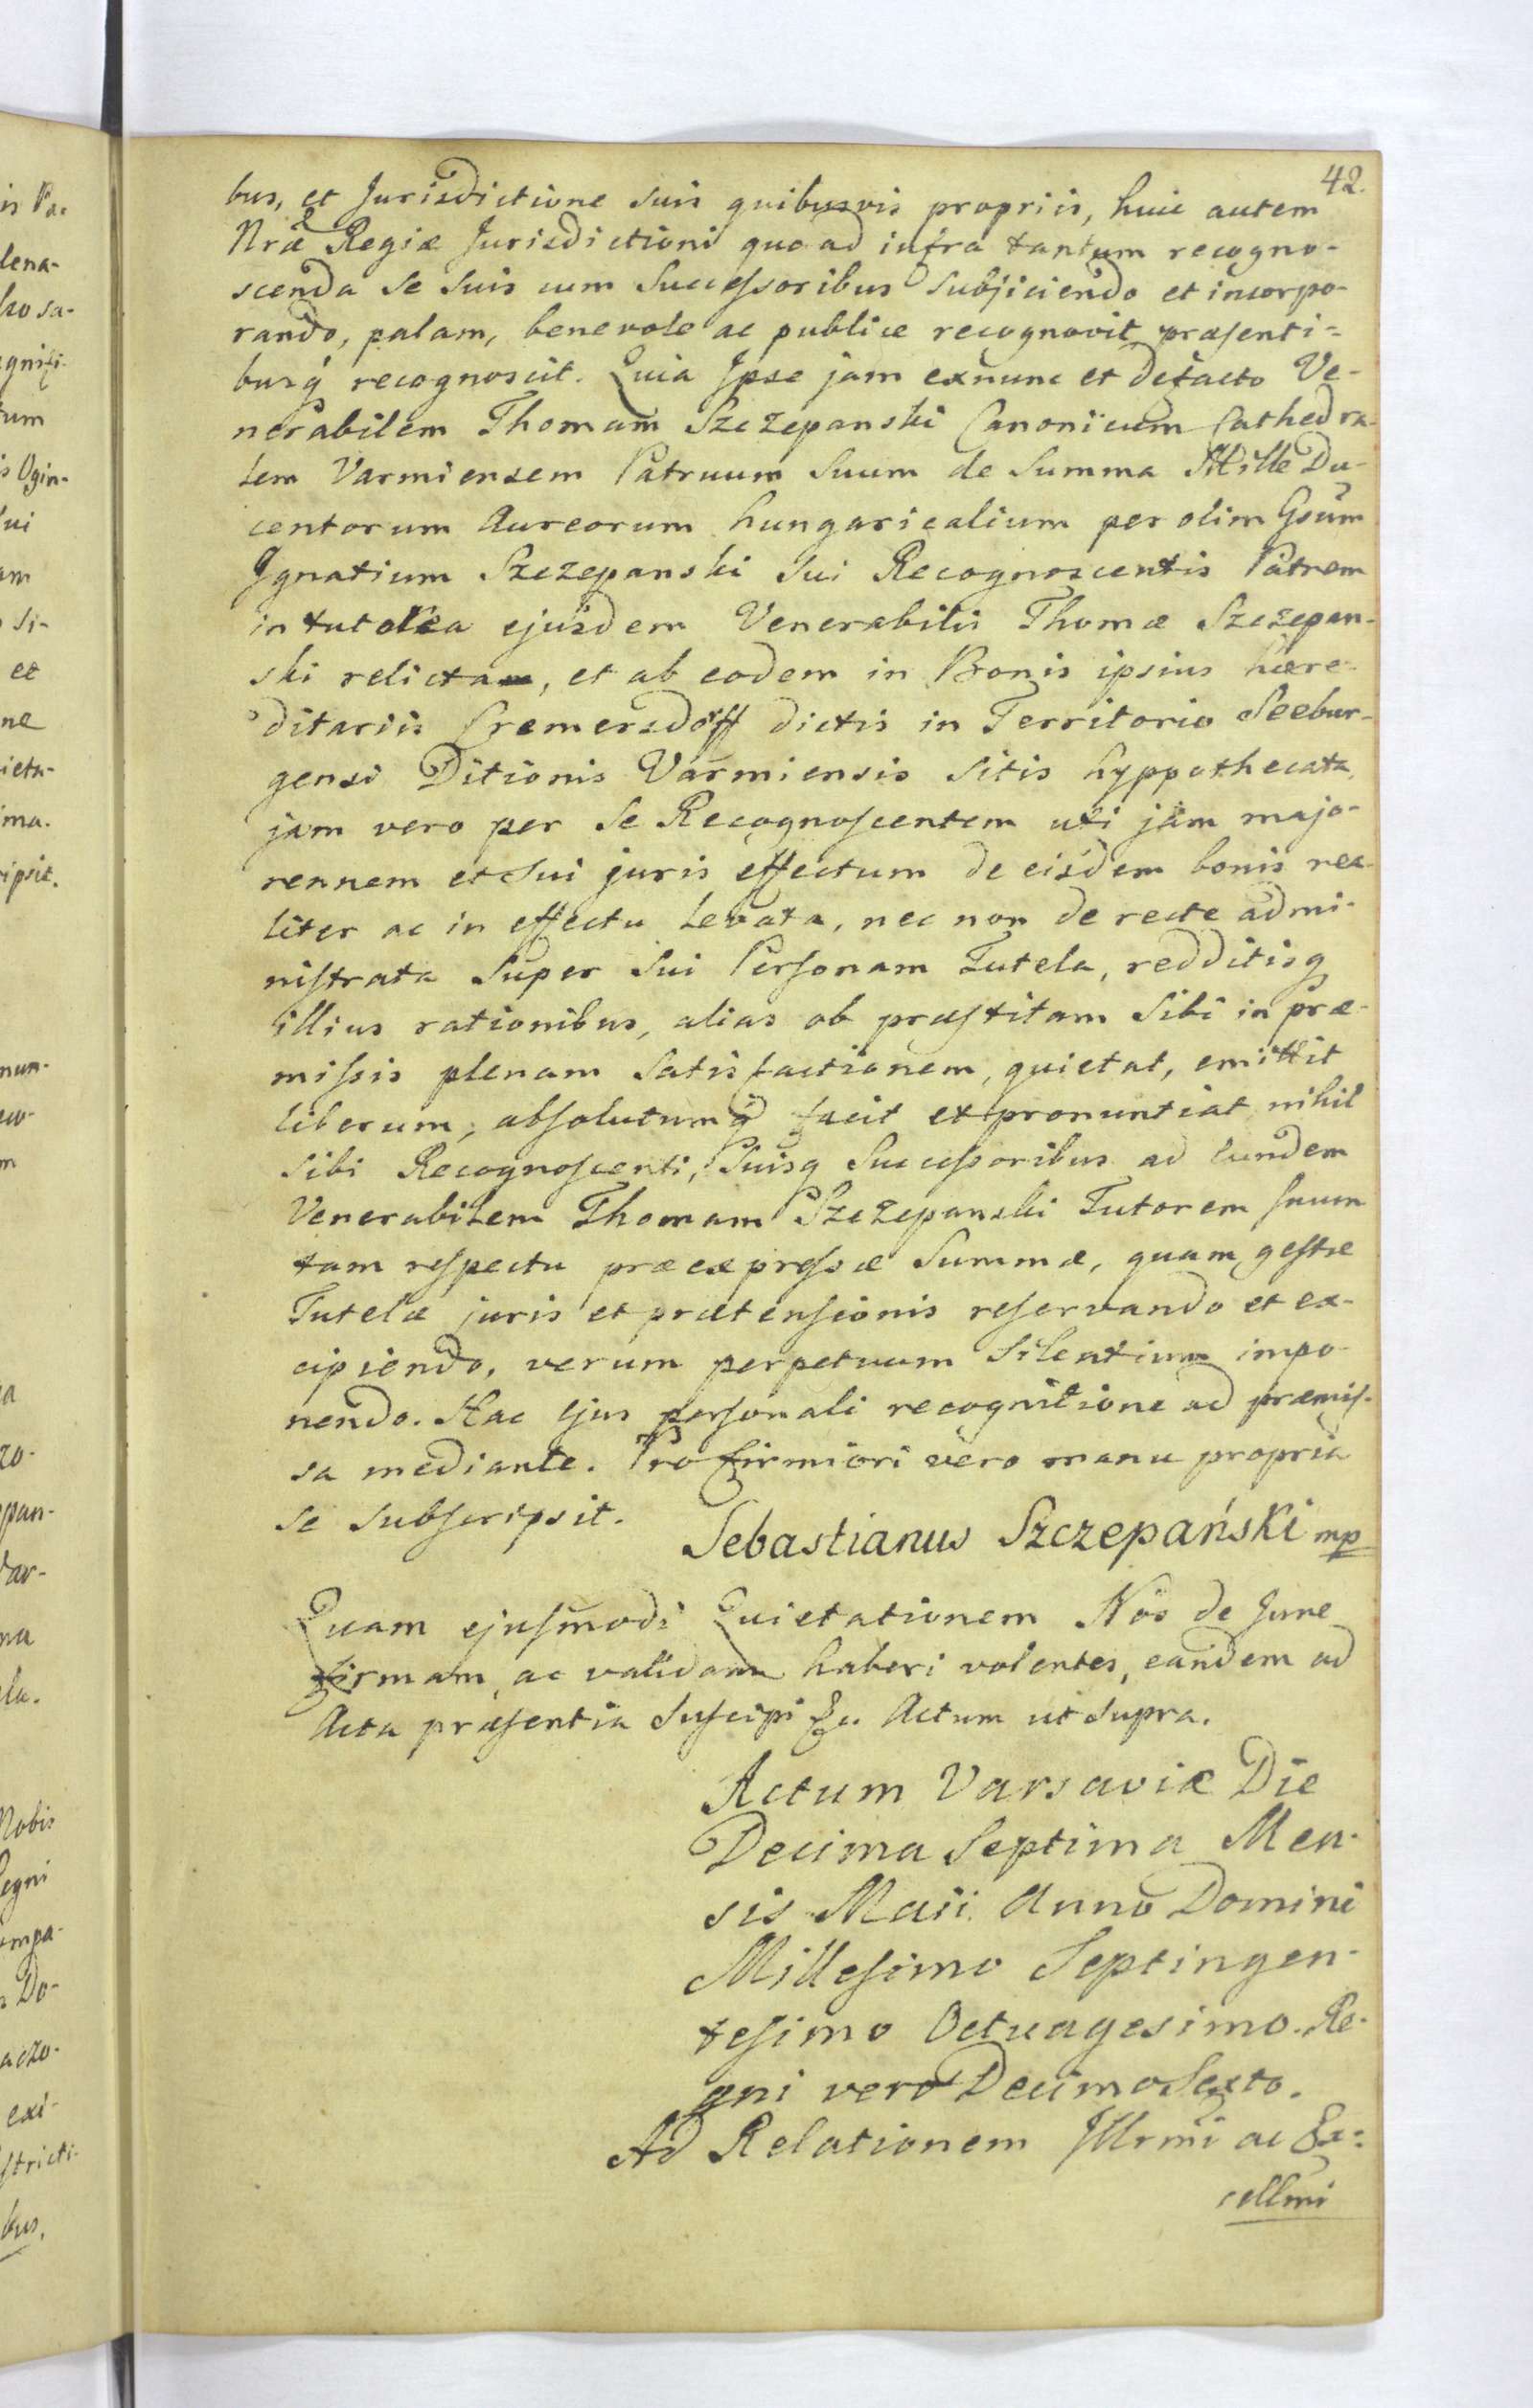 42.
bus, et Jurisdictione suis quibusvis propriis, huic autem
Nrae Regiae Jurisdictioni quo ad infra tantum recogno-
scenda se suis cum Successoribus subjiciendo et incorpo-
rando, palam, benevole ac publice recognovit, praesenti=
busq recognoscit. Quia Ipse jam exnunc et defacto Ve-
nerabilem Thomam Szczepanski Canonicum Cathedra-
lem Varmiensem Patruum Suum de Summa Mille Du-
centorum Aureorum hungaricalium per olim Gsum
Ignatium Szczepanski sui Recognoscentis Patrem
in tutelea ejusdem Venerabilis Thomae Szczepan-
ski relicta, et ab eodem in Bonis ipsius haere-
ditariis Cremersdorff dictis in Territorio Seebur-
gensi Ditionis Varmiensis sitis hyppothecata,
jam vero per Se Recognoscentem uti jam majo-
rennem et sui juris effectum de eisdem bonis rea-
liter ac in effectu levata, nec non de recte admi-
nistrata super sui Personam Tutela, redditisq
illius rationibus, alias ob praestitam sibi in prae-
missis plenam satisfactionem, quietat, emittit
liberum, absolutumq facit et pronuntiat, nihil
sibi Recognoscenti, suisq Successoribus ad Eundem
Venerabilem Thomam Szczepanski Tutorem suum
tam respectu praeexpressae Summae, quam gestae
Tutelae juris et praetensionis reservando et ex-
cipiendo, verum perpetuum silentium impo-
nendo. Hac ejus personali recognitione ad praemis-
sa mediante. Pro firmiori vero manu propria
se subscripsit.
Sebastianus Szczepański mp
Quam ejusmodi Quietationem Nos de Jure
firmam, ac validam haberi volentes, eandem ad
Acta praesentia suscipi &c. Actum ut supra.
Actum Varsaviae Die
Decima Septima Men-
sis Maii Anno Domini
Millesimo Septingen-
tesimo Octuagesimo. Re-
gni vero Decimo Sexto.
Ad Relationem Illrmi ac Ex=
cellmi
is Pa-
lena-
ho sa-
gnifi-
tum
is Ogin-
ui
am
si-
et
ne
ictu-
ima.
ipsit.
nun-
m
a
zo-
pan-
Var-
na
la.
Nobis
Regni
mpa-
Do-
aczo-
exi-
stricti-
bus,